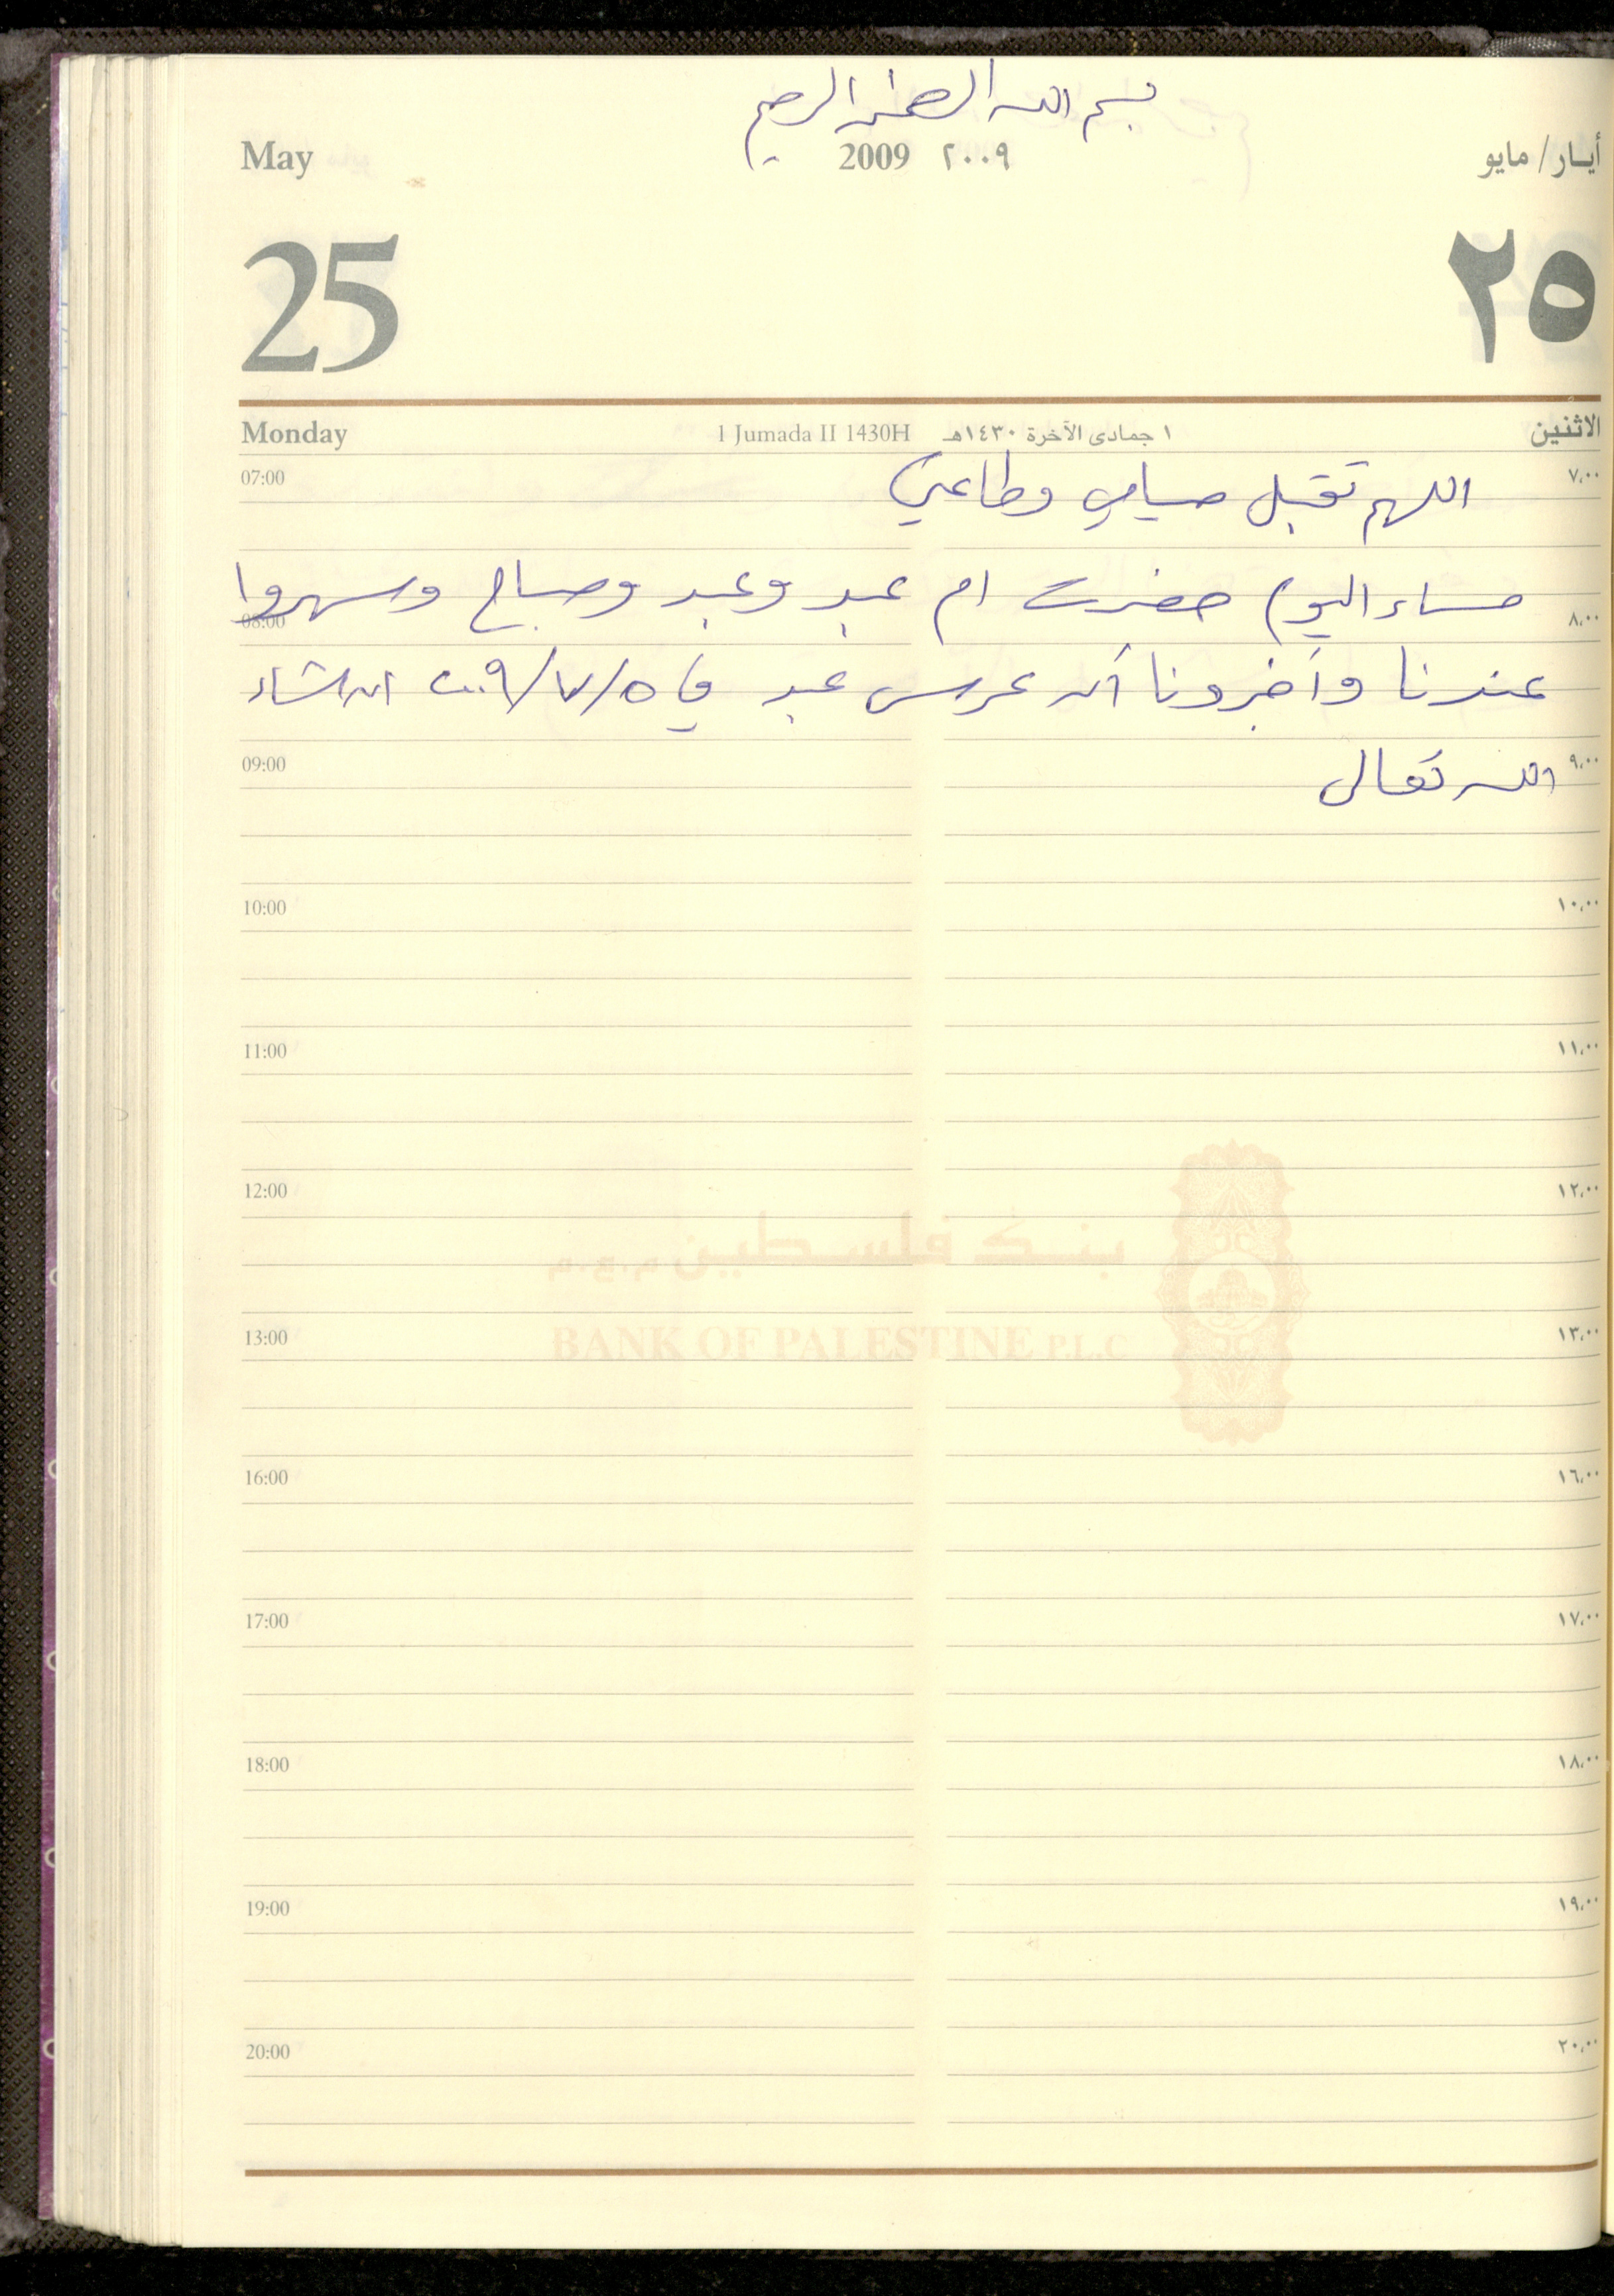 بسم الله الرحمن الرحيم
May 2009 ٢٠٠٩ أيـار/ مايو
25 ٢٥
Monday 1 Jumada II 1430H ١ جمادى الآخرة ١٤٣٠هـ الاثنين
07:00 ٧,٠٠
اللهم تقبل صيامي وطاعتي
مساء اليوم حضرت ام عبد وعبد وصباح وسهروا
08:00 ٨,٠٠
عندنا وأخبرونا أن عرس عبد في ٢٠٠٩/٧/٥ ان شاء
09:00 ٩,٠٠
الله تعالى
10:00 ١٠,٠٠
11:00 ١١,٠٠
12:00 ١٢,٠٠
بنك فلسطين م.ع.م.
13:00 BANK OF PALESTINE P.L.C ١٣,٠٠
16:00 ١٦,٠٠
17:00 ١٧,٠٠
18:00 ١٨,٠٠
19:00 ١٩,٠٠
20:00 ٢٠,٠٠